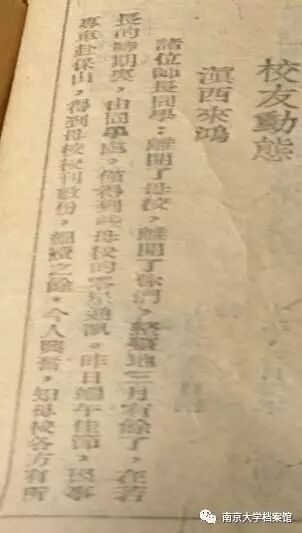 校友動態
滇西來鴻
諸位師長同學:離開了母校,離開了你們,整整地三月有餘了,在若
長的時期裏,由同學處,僅得到些母校的零星通訊。昨日端午佳節,因事
專車赴保山,得到母校校刊數份,細讀之餘,令人興奮,知母校各方有所
南京大学档案馆